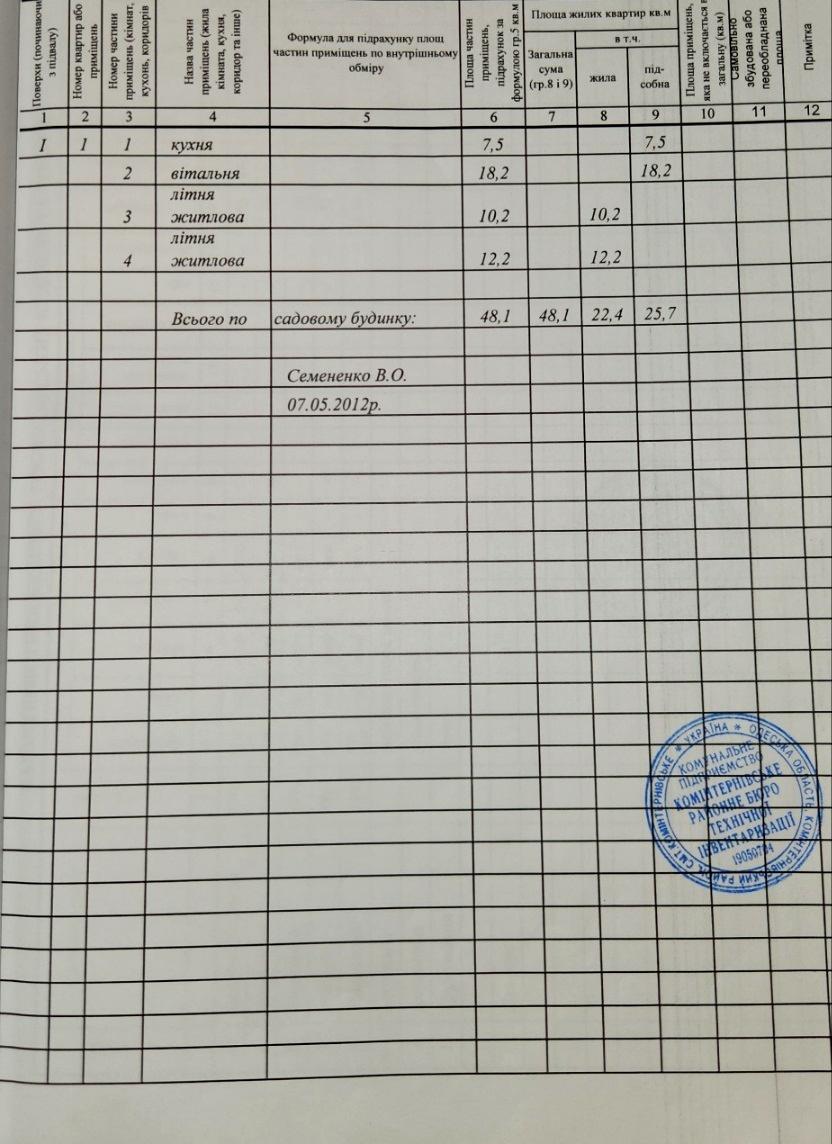 Поверхи (починаючи з підвалу)
Номер квартир або приміщень
Номер частини приміщень (кімнат, кухонь, коридорів
Назва частин приміщень (жила кімната, кухня, коридор та інше)
Формула для підрахунку площ
частин приміщень по внутрішньому
обміру
Площа частин приміщень, підрахунок за формулою гр.5 кв.м
Площа жилих квартир кв.м
Загальна
сума
(гр.8 і 9)
в т.ч.
жила
під-
собна
Площа приміщень, яка не включається в загальну (кв.м)
Самовільно збудована або переобладнана площа
Примітка
1 2 3 4 5 6 7 8 9 10 11 12
I 1 1 кухня 7,5 7,5
2 вітальня 18,2 18,2
літня
3 житлова 10,2 10,2
літня
4 житлова 12,2 12,2
Всього по садовому будинку: 48,1 48,1 22,4 25,7
Семененко В.О.
07.05.2012р.
* УКРАЇНА * ОДЕСЬКА ОБЛАСТЬ, КОМІНТЕРНІВСЬКИЙ РАЙОН, СМТ КОМІНТЕРНІВСЬКЕ
КОМУНАЛЬНЕ
ПІДПРИЄМСТВО
КОМІНТЕРНІВСЬКЕ
РАЙОННЕ БЮРО
ТЕХНІЧНОЇ
ІНВЕНТАРИЗАЦІЇ